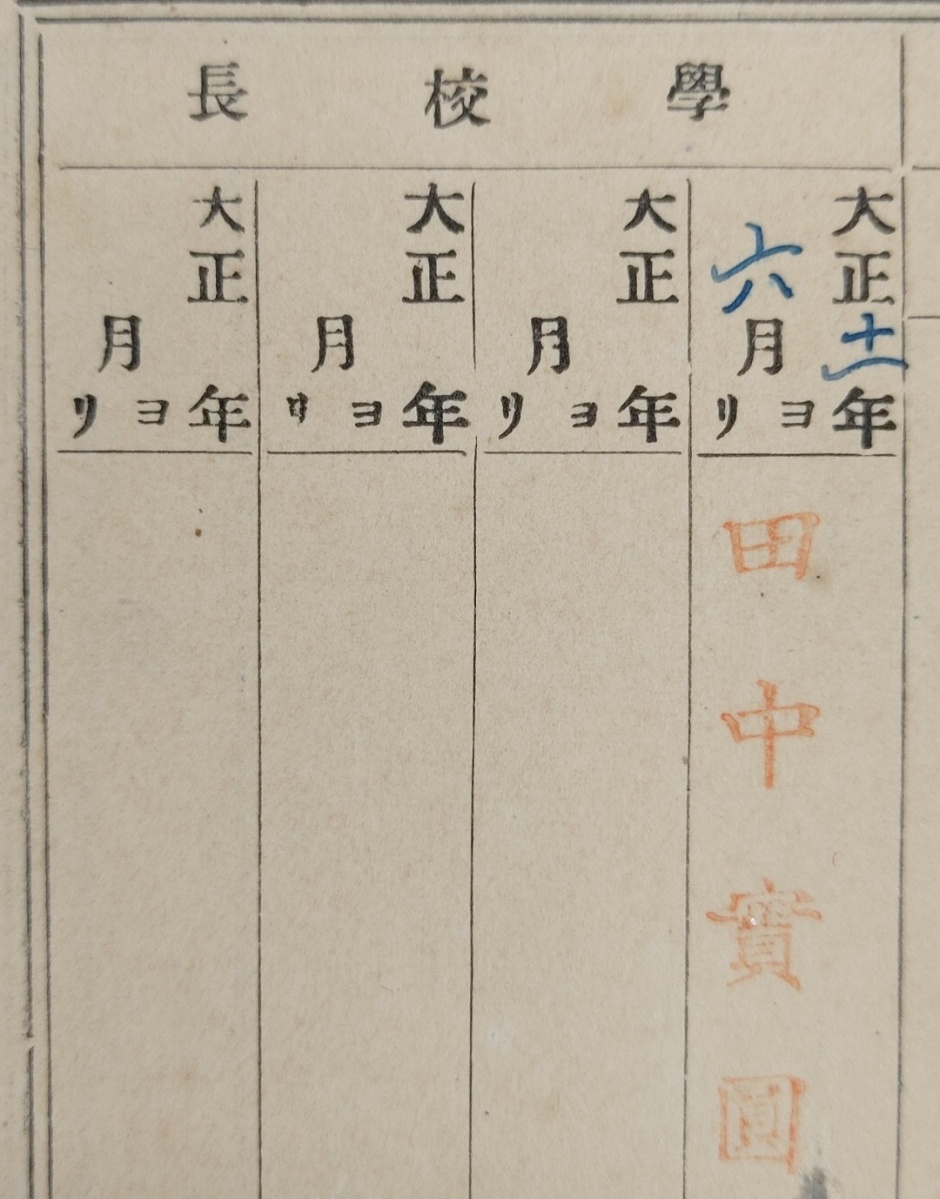 學校長
大正十一年
六月ヨリ
田中實圓
大正年
月ヨリ
大正年
月ヨリ
大正年
月ヨリ